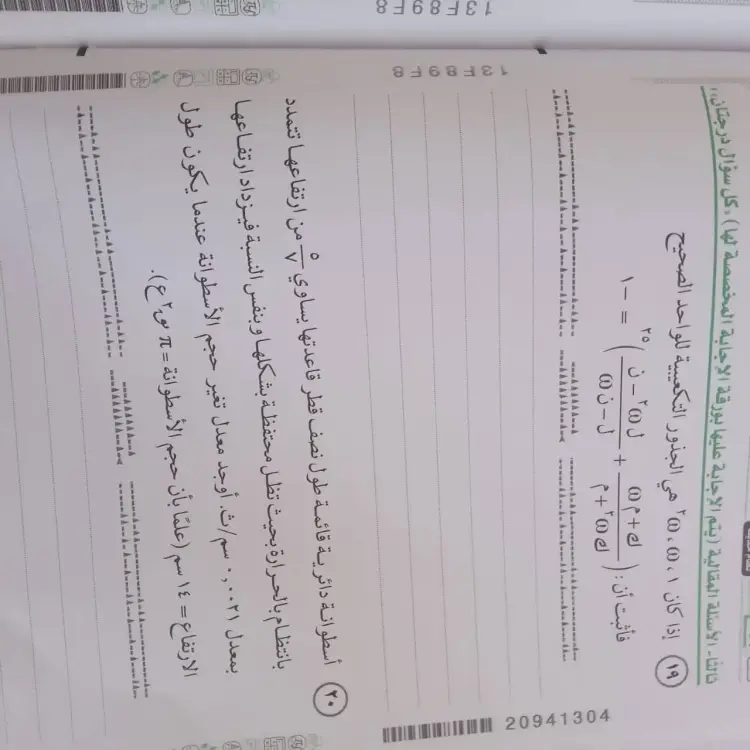 13F89F8
13F89F8
ثالثًا- الأسئلة المقالية (يتم الإجابة عليها بورقة الإجابة المخصصة لها) «كل سؤال درجتان»:
١٩ إذا كان ١، ω، ω² هي الجذور التكعيبية للواحد الصحيح
فأثبت أن: ( (ك + م ω) / (ك ω² + م) + (ل ω² − ن) / (ل − ن ω) )²⁵ = −١
٢٠ أسطوانة دائرية قائمة طول نصف قطر قاعدتها يساوي ٥/٧ من ارتفاعها تتمدد
بانتظام بالحرارة بحيث تظل محتفظة بشكلها وبنفس النسبة فيزداد ارتفاعها
بمعدل ٠,٠٠٢١ سم/ث. أوجد معدل تغير حجم الأسطوانة عندما يكون طول
الارتفاع = ١٤ سم (علمًا بأن حجم الأسطوانة = π نق² ع).
20941304